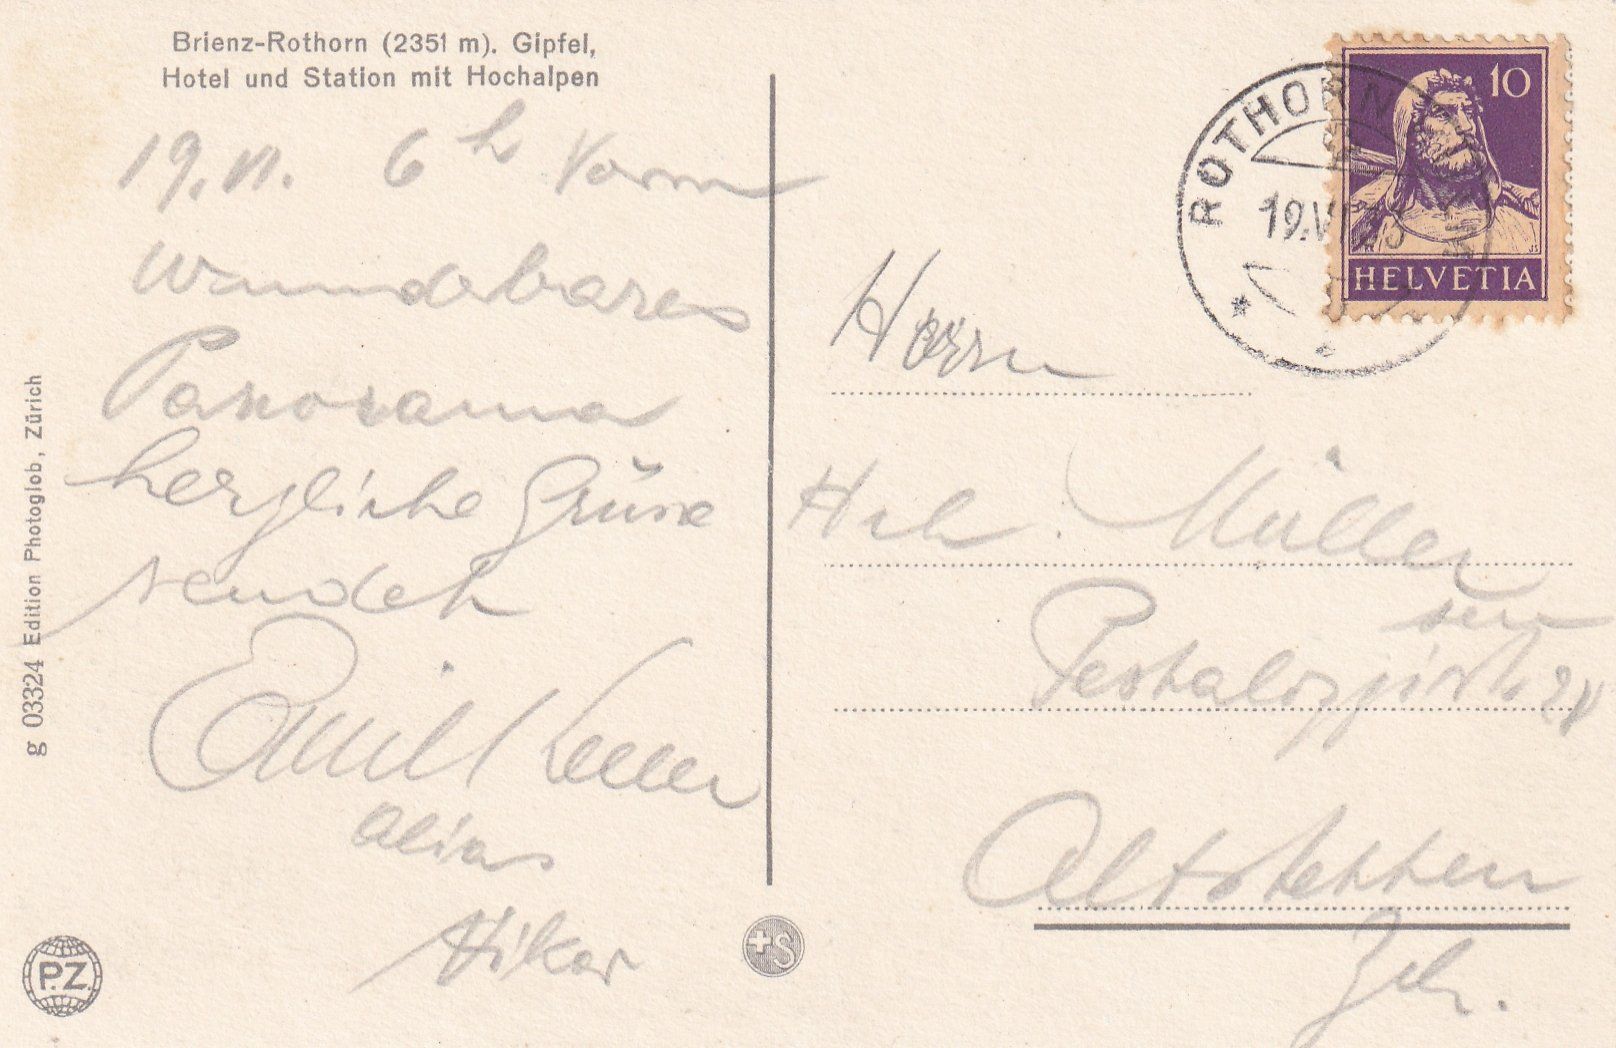 Brienz-Rothorn (2351 m). Gipfel,
Hotel und Station mit Hochalpen
19. VI. 6 h Vorm
wunderbares
Panorama
herzliche Grüsse
sendet
Emil Keller
alias
g 03324 Edition Photoglob, Zürich
P.Z.
+S
ROTHORN
19.VI
10
HELVETIA
Herrn
Hch. Müller
sen
Pestalozzistr.
Altstetten
Zch.